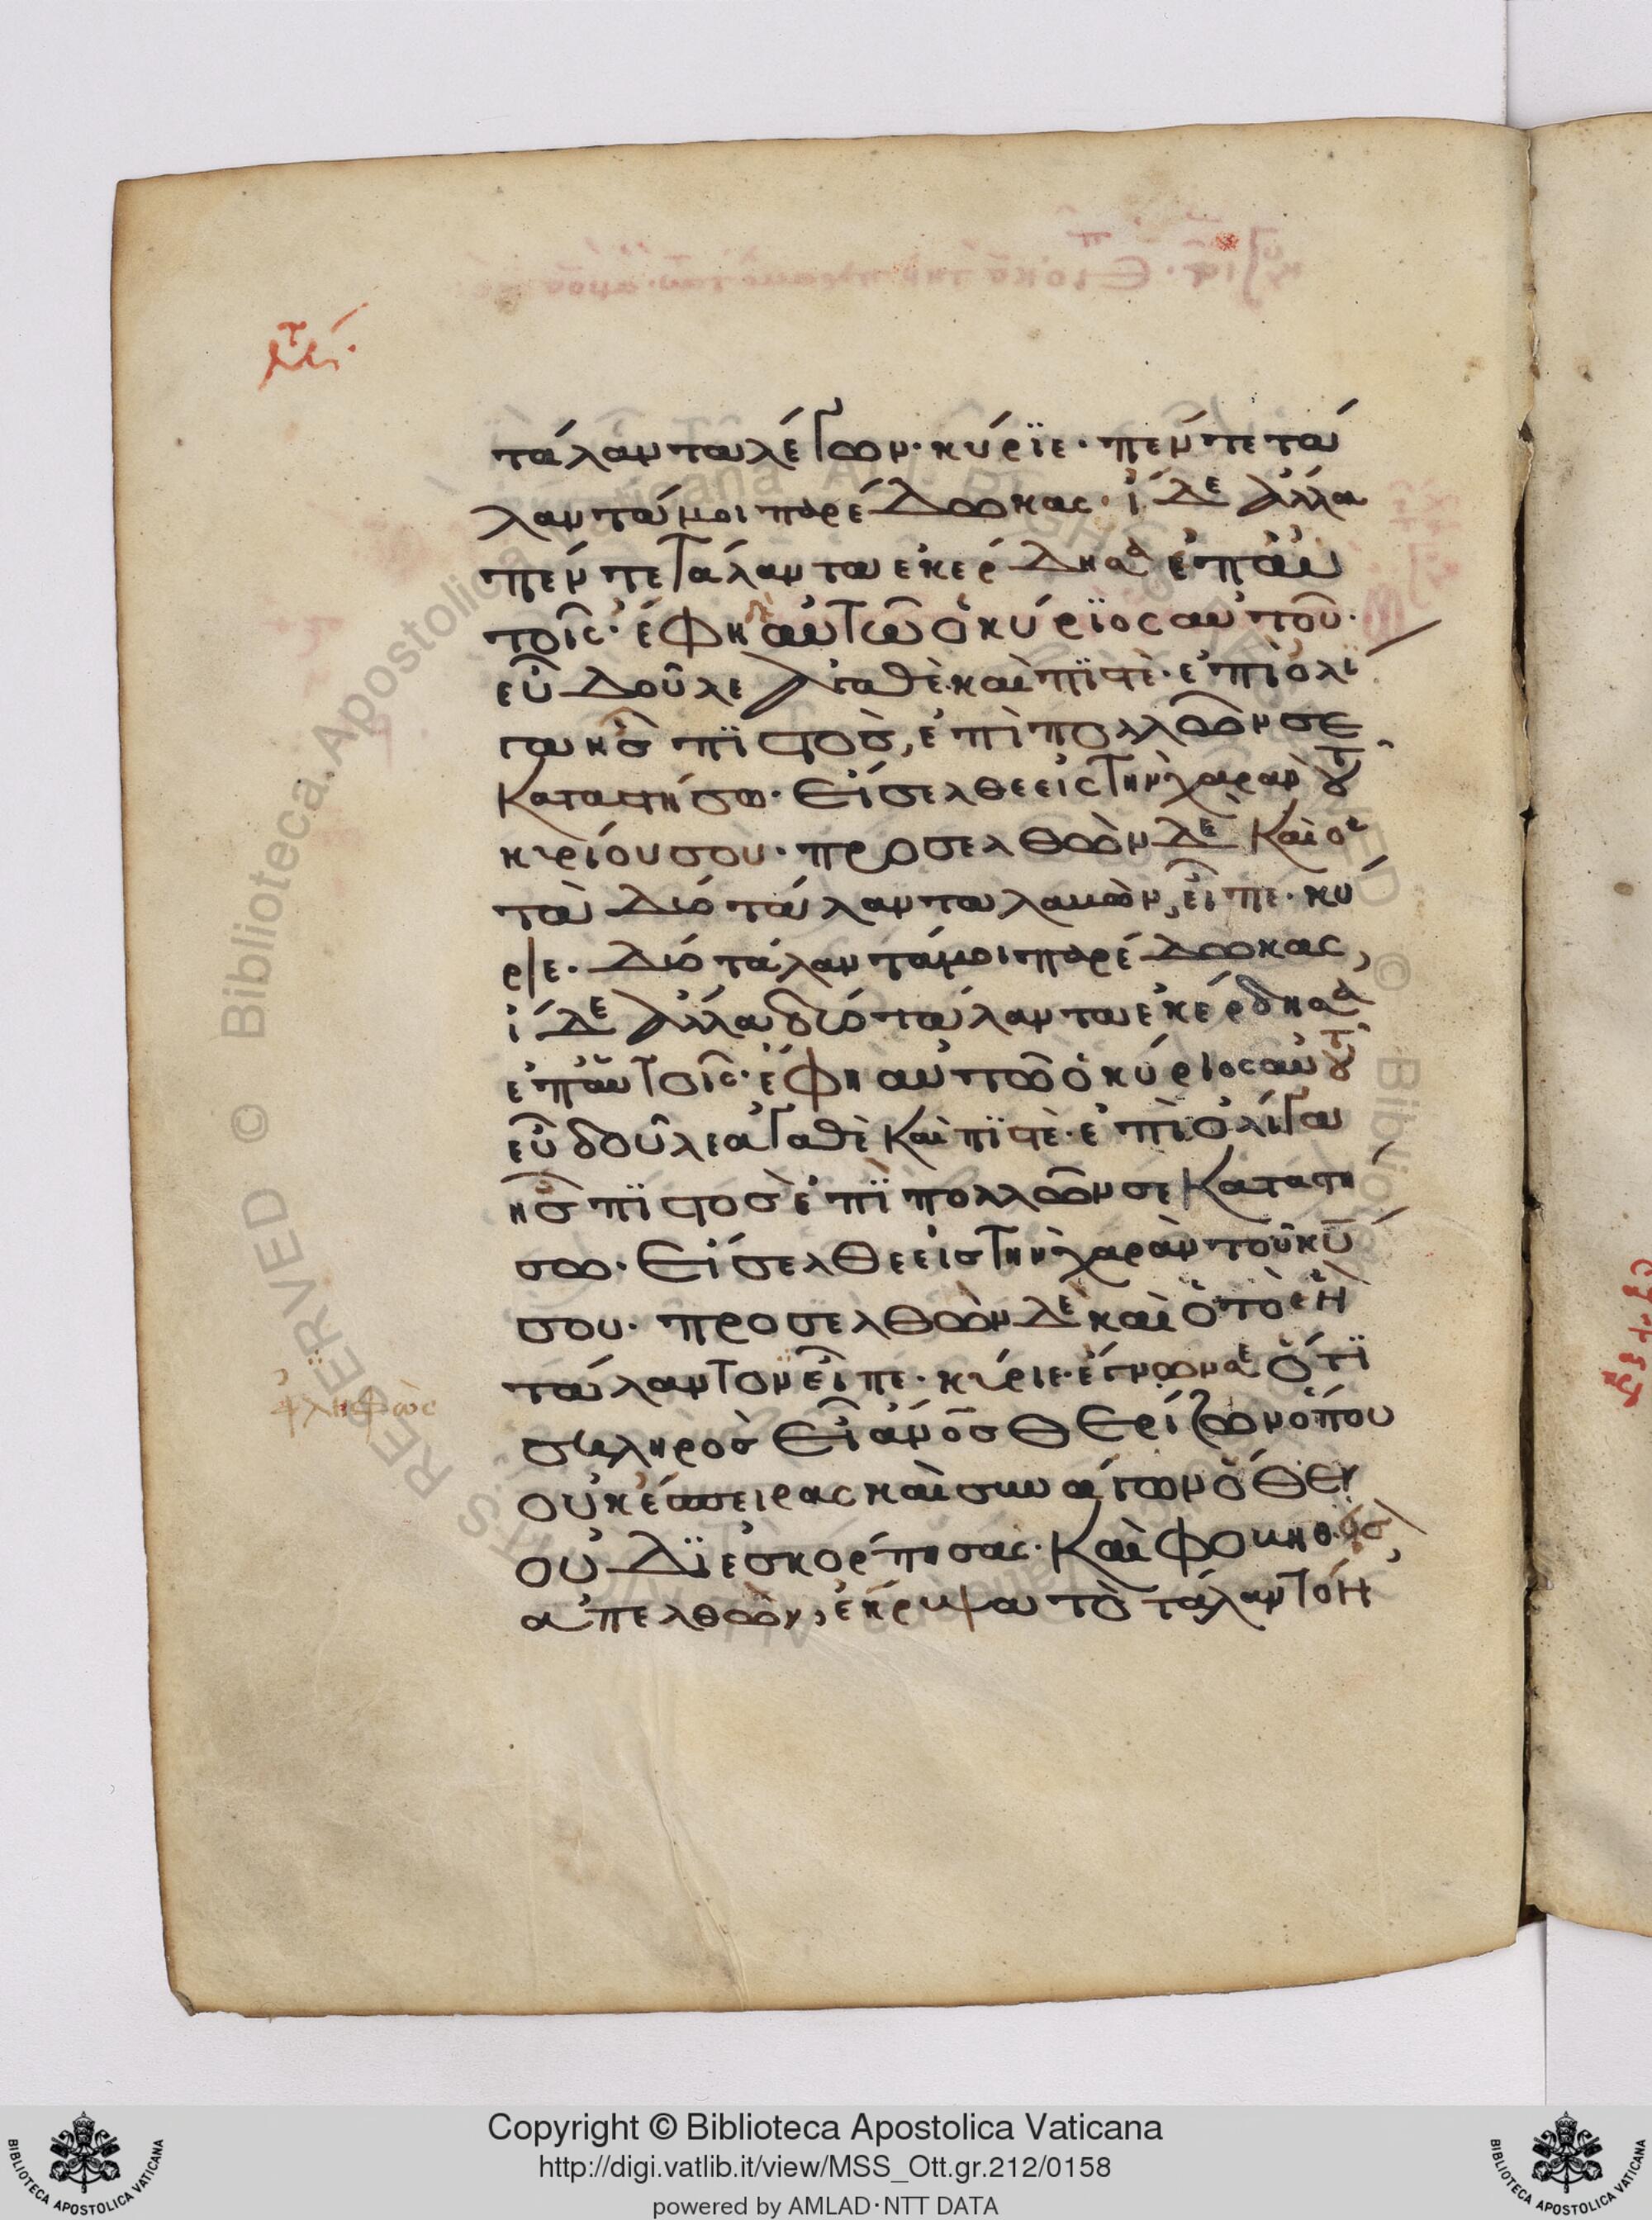 τάλαντα λέγων· κύριε· πέντε τά
λαντά μοι παρέδωκας· ἴδε ἄλλα
πέντε τάλαντα ἐκέρδησα ἐπ' αὐ
τοῖς· ἔφη δὲ αὐτῶ ὁ κύριος αὐτοῦ·
εὖ δοῦλε ἀγαθὲ καὶ πϊστέ· ἐπὶ ὀλί
γα ἦς πϊστός, ἐπὶ πολλῶν σε
καταστήσω· Εἴσελθε εἰς τὴν χαρὰν τοῦ
κυρίου σου· προσελθὼν δὲ καὶ ὁ
τὰ δύο τάλαντα λαβὼν, εἶπε· κύ
ριε· δύο τάλαντά μοι παρέδωκας,
ἴδε ἄλλα δύο τάλαντα ἐκέρδησα
ἐπ' αὐτοῖς· ἔφη αὐτῶ ὁ κύριος αὐτοῦ
εὖ δοῦλε ἀγαθὲ καὶ πϊστέ· ἐπὶ ὀλίγα
ἦς πϊστὸς ἐπϊ πολλῶν σε καταστή
σω· Εἴσελθε εἰς τὴν χαρὰν τοῦ κυ
σου· προσελθὼν δὲ καὶ ὁ τὸ ἐν
τάλαντον εἶπε· κύριε· ἔγνων σε ὅτϊ
σκληρὸς εἶ ἄνος θερίζων ὅπου
οὐκ ἔσπειρας καὶ συνάγων ὅθεν
οὐ διεσκόρπησας· Καὶ φοβηθεὶς
ἀπελθὼν, ἔκρυψα τὸ τάλαντον
Copyright © Biblioteca Apostolica Vaticana
http://digi.vatlib.it/view/MSS_Ott.gr.212/0158
powered by AMLAD·NTT DATA